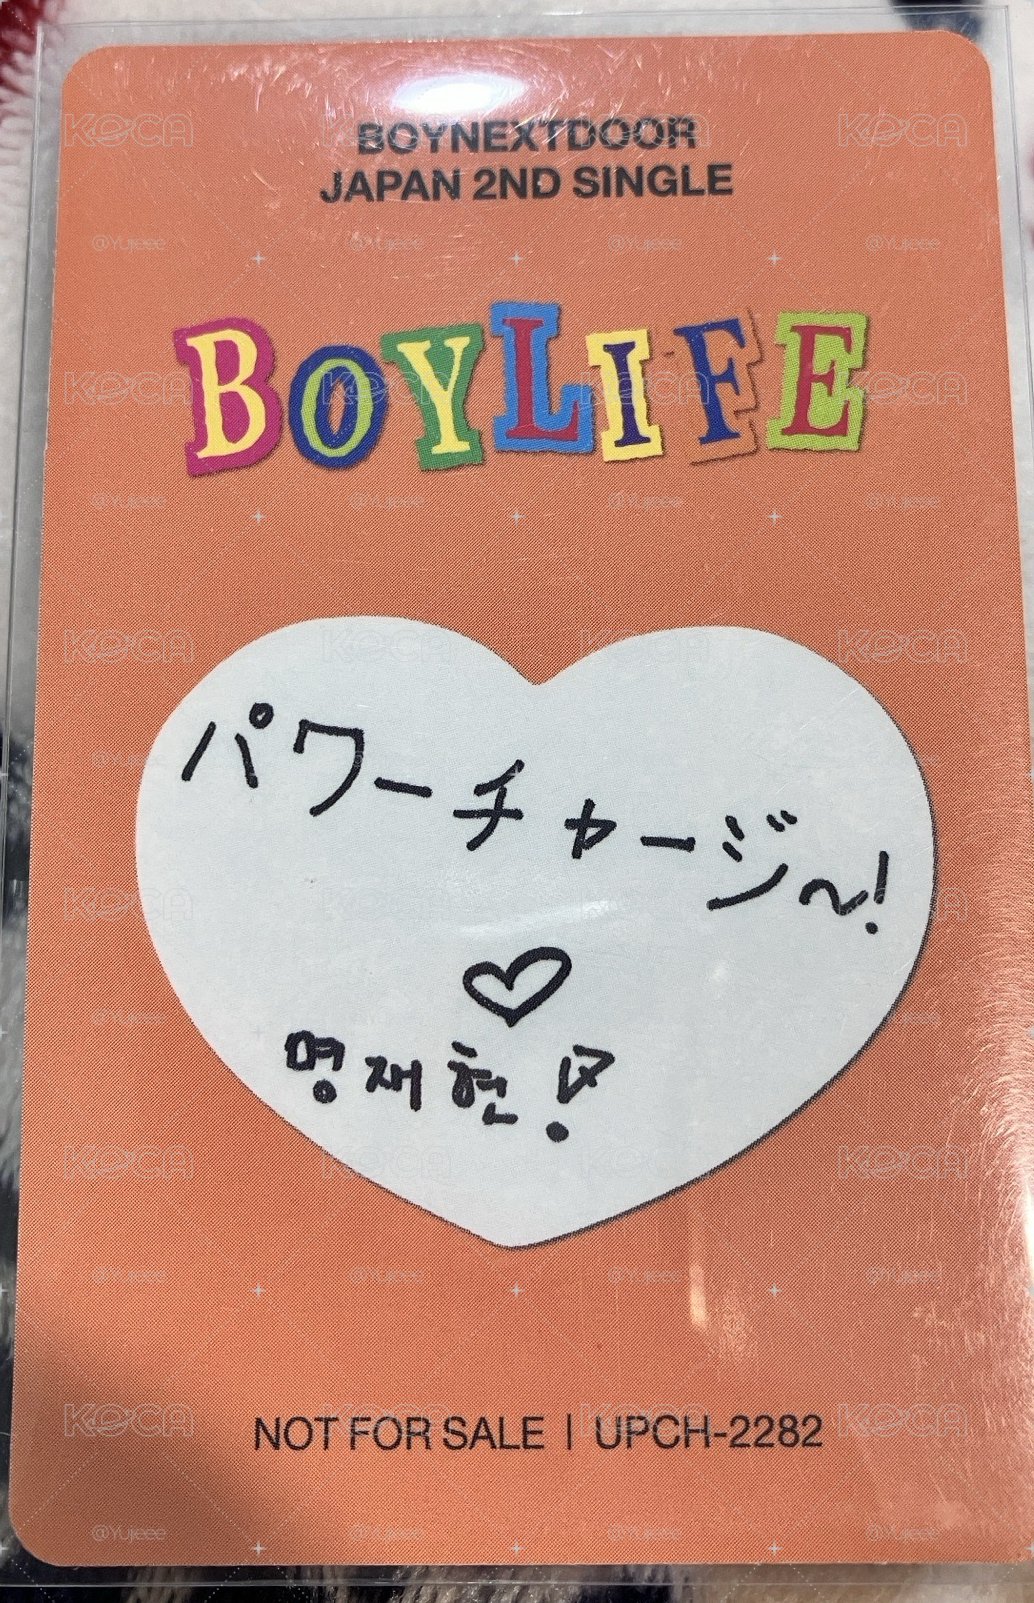 BOYNEXTDOOR
JAPAN 2ND SINGLE
BOYLIFE
パワーチャージ〜!
♡
명재현!
NOT FOR SALE | UPCH-2282
KOCA
@Yujeee